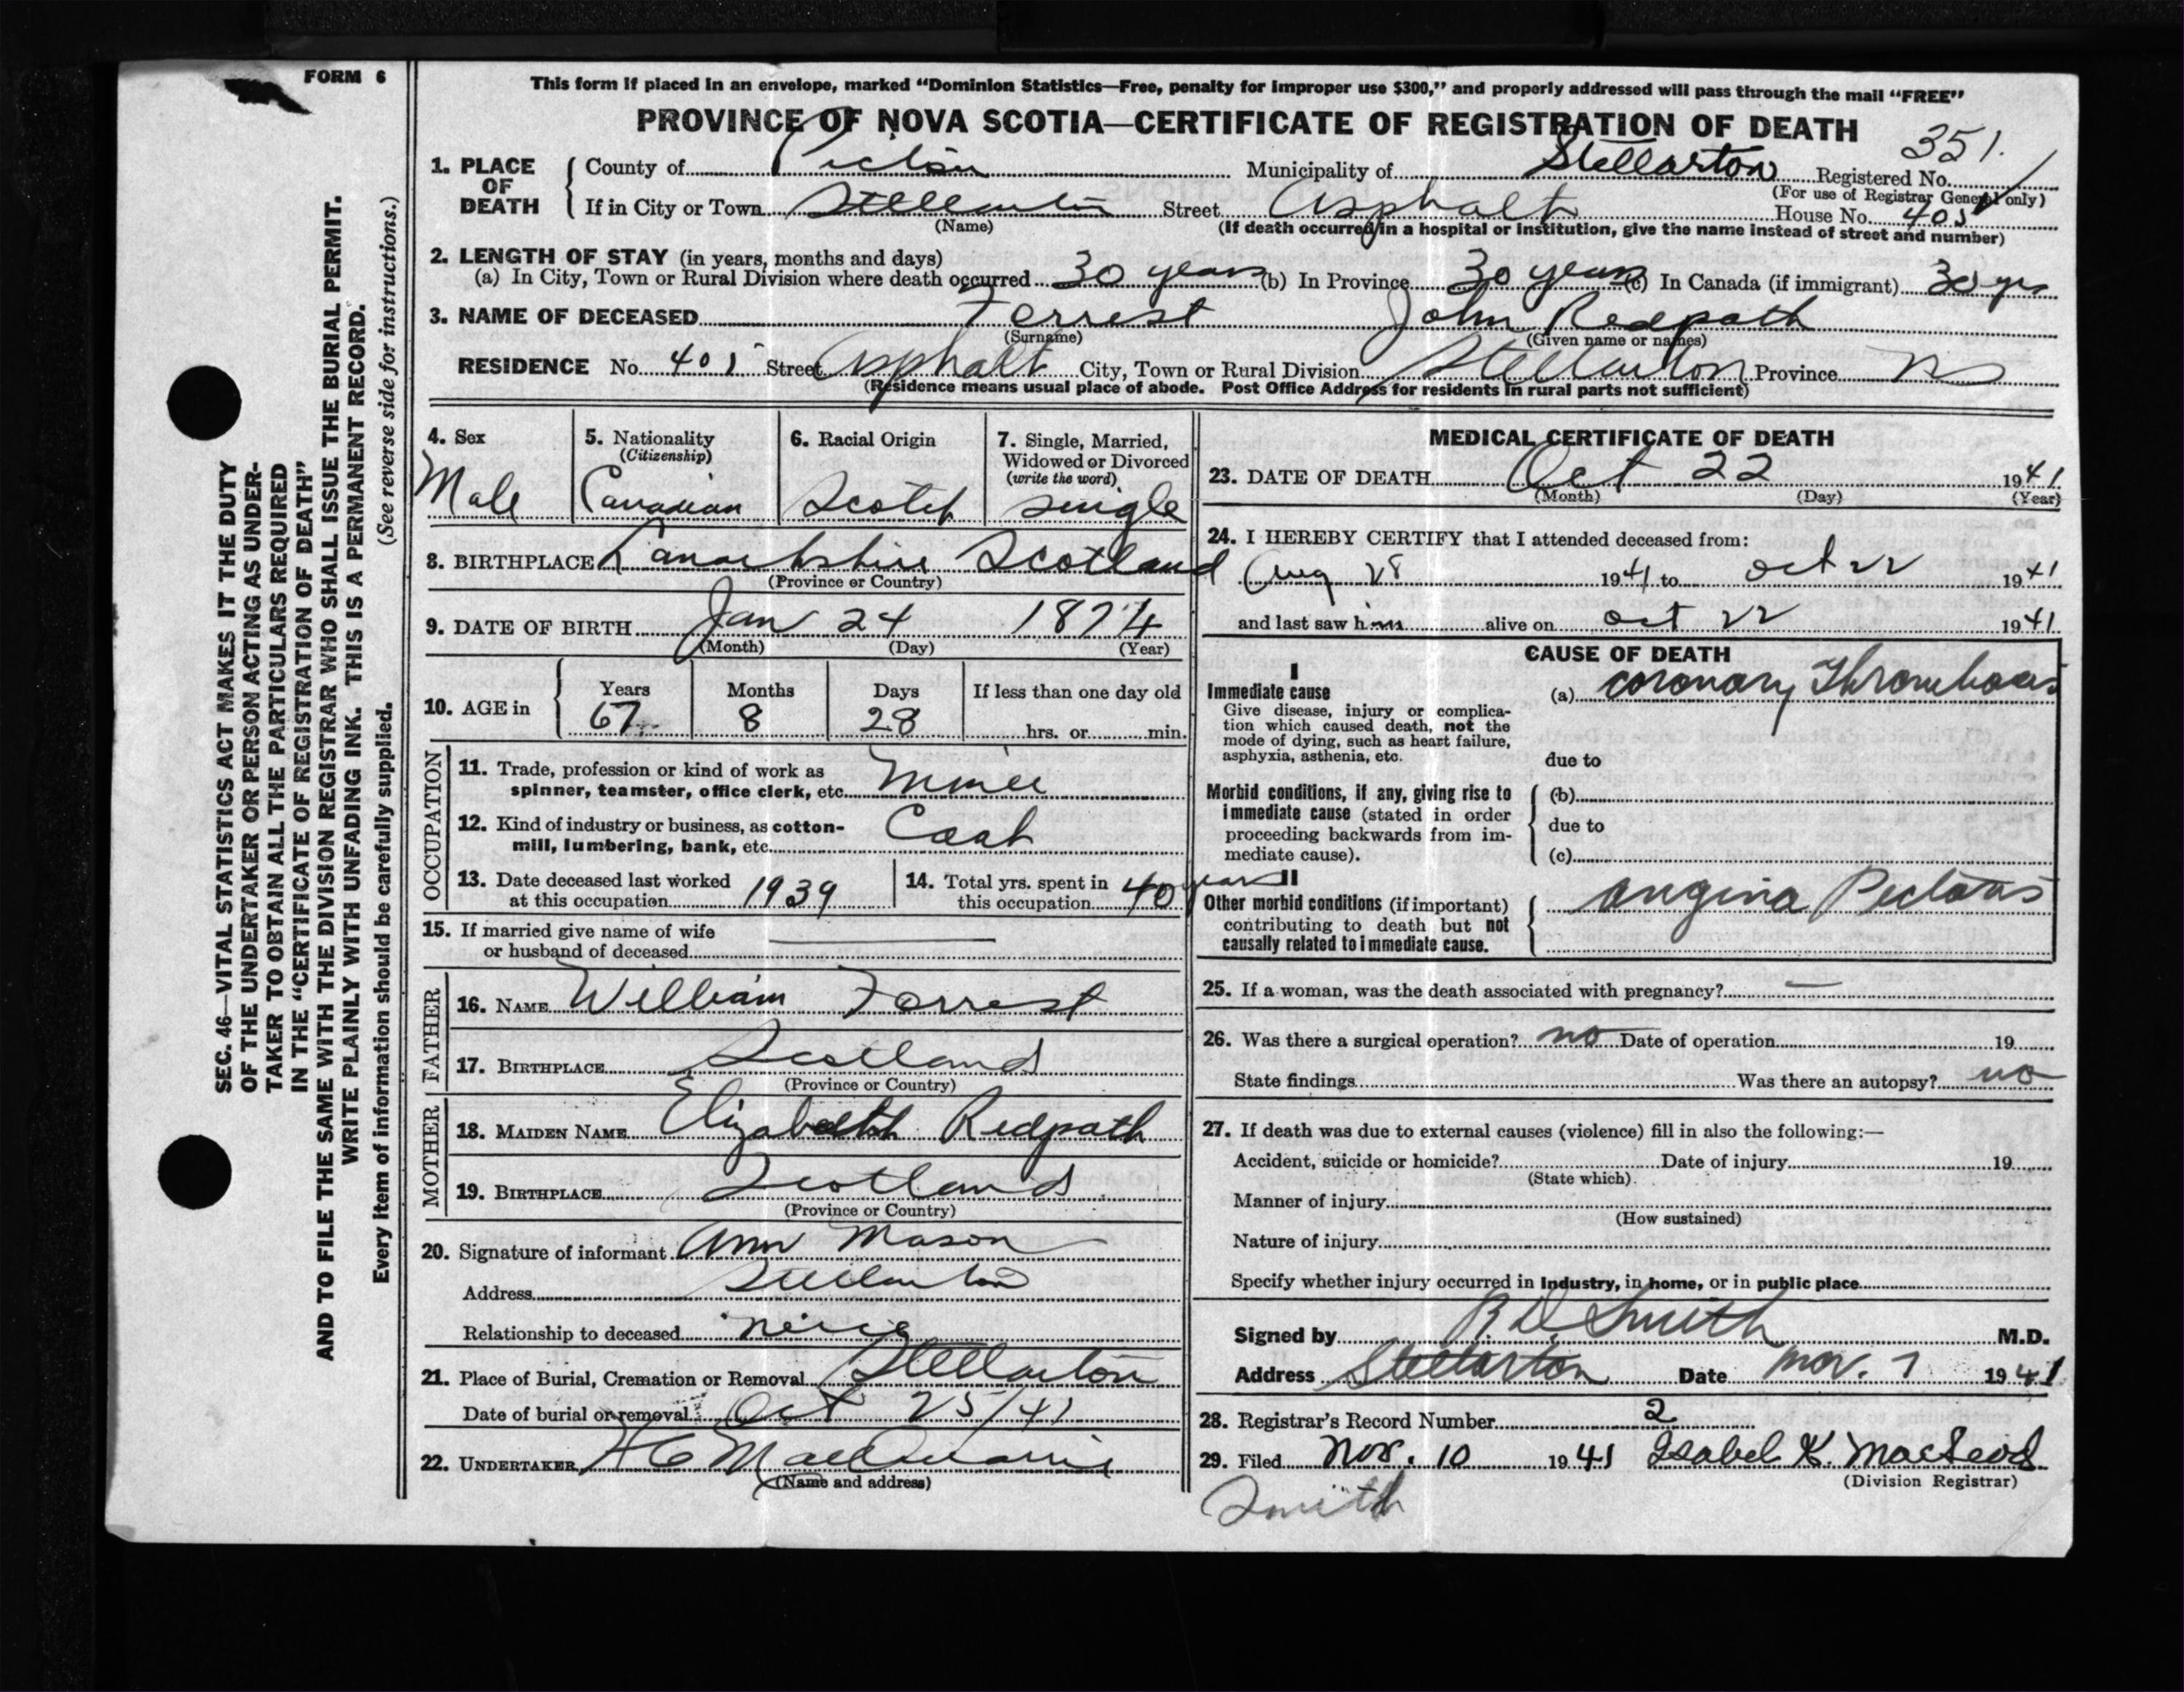 FORM 6
This form if placed in an envelope, marked "Dominion Statistics—Free, penalty for improper use $300," and properly addressed will pass through the mail "FREE"
PROVINCE OF NOVA SCOTIA—CERTIFICATE OF REGISTRATION OF DEATH
351.
1. PLACE OF DEATH
County of Pictou Municipality of Stellarton Registered No.
(For use of Registrar General only)
If in City or Town Stellarton Street Asphalt House No. 405
(Name) (If death occurred in a hospital or institution, give the name instead of street and number)
2. LENGTH OF STAY (in years, months and days)
(a) In City, Town or Rural Division where death occurred 30 years (b) In Province 30 years (c) In Canada (if immigrant) 30 yrs
3. NAME OF DECEASED Forrest John Redpath
(Surname) (Given name or names)
RESIDENCE No. 405 Street Asphalt City, Town or Rural Division Stellarton Province NS
(Residence means usual place of abode. Post Office Address for residents in rural parts not sufficient)
SEC. 46—VITAL STATISTICS ACT MAKES IT THE DUTY
OF THE UNDERTAKER OR PERSON ACTING AS UNDER-
TAKER TO OBTAIN ALL THE PARTICULARS REQUIRED
IN THE "CERTIFICATE OF REGISTRATION OF DEATH"
AND TO FILE THE SAME WITH THE DIVISION REGISTRAR WHO SHALL ISSUE THE BURIAL PERMIT.
WRITE PLAINLY WITH UNFADING INK. THIS IS A PERMANENT RECORD.
Every item of information should be carefully supplied. (See reverse side for instructions.)
4. Sex
Male
5. Nationality
(Citizenship)
Canadian
6. Racial Origin
Scotch
7. Single, Married,
Widowed or Divorced
(write the word)
single
8. BIRTHPLACE Lanarkshire Scotland
(Province or Country)
9. DATE OF BIRTH Jan 24 1874
(Month) (Day) (Year)
10. AGE in
Years Months Days If less than one day old
67 8 28 hrs. or min.
OCCUPATION
11. Trade, profession or kind of work as
spinner, teamster, office clerk, etc. Miner
12. Kind of industry or business, as cotton-
mill, lumbering, bank, etc. Coal
13. Date deceased last worked
at this occupation 1939
14. Total yrs. spent in
this occupation 40 years
15. If married give name of wife
or husband of deceased
FATHER
16. NAME William Forrest
17. BIRTHPLACE Scotland
(Province or Country)
MOTHER
18. MAIDEN NAME Elizabeth Redpath
19. BIRTHPLACE Scotland
(Province or Country)
20. Signature of informant Ann Mason
Address Stellarton
Relationship to deceased neice
21. Place of Burial, Cremation or Removal Stellarton
Date of burial or removal Oct 25/41
22. UNDERTAKER
(Name and address)
MEDICAL CERTIFICATE OF DEATH
23. DATE OF DEATH Oct 22 1941
(Month) (Day) (Year)
24. I HEREBY CERTIFY that I attended deceased from:
Aug 28 1941 to Oct 22 1941
and last saw him alive on Oct 22 1941
CAUSE OF DEATH
I
Immediate cause
Give disease, injury or complica-
tion which caused death, not the
mode of dying, such as heart failure,
asphyxia, asthenia, etc.
(a) Coronary Thrombosis
due to
Morbid conditions, if any, giving rise to
immediate cause (stated in order
proceeding backwards from im-
mediate cause).
(b)
due to
(c)
II
Other morbid conditions (if important)
contributing to death but not
causally related to immediate cause.
Angina Pectoris
25. If a woman, was the death associated with pregnancy? —
26. Was there a surgical operation? no Date of operation 19
State findings Was there an autopsy? no
27. If death was due to external causes (violence) fill in also the following:—
Accident, suicide or homicide? Date of injury 19
(State which)
Manner of injury
(How sustained)
Nature of injury
Specify whether injury occurred in industry, in home, or in public place
Signed by R. D. Smith M.D.
Address Stellarton Date Nov. 7 1941
28. Registrar's Record Number 2
29. Filed Nov. 10 1941 Isabel K. MacLeod
(Division Registrar)
Smith